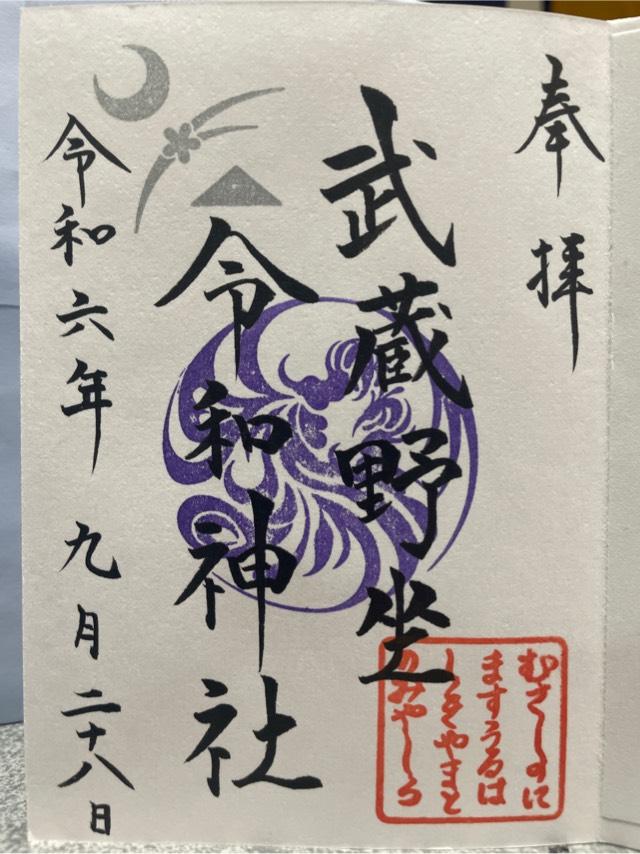 奉拝
武蔵野坐
令和神社
令和六年 九月二十八日
むさしのに
ますうるは
しきやまと
のみやしろ